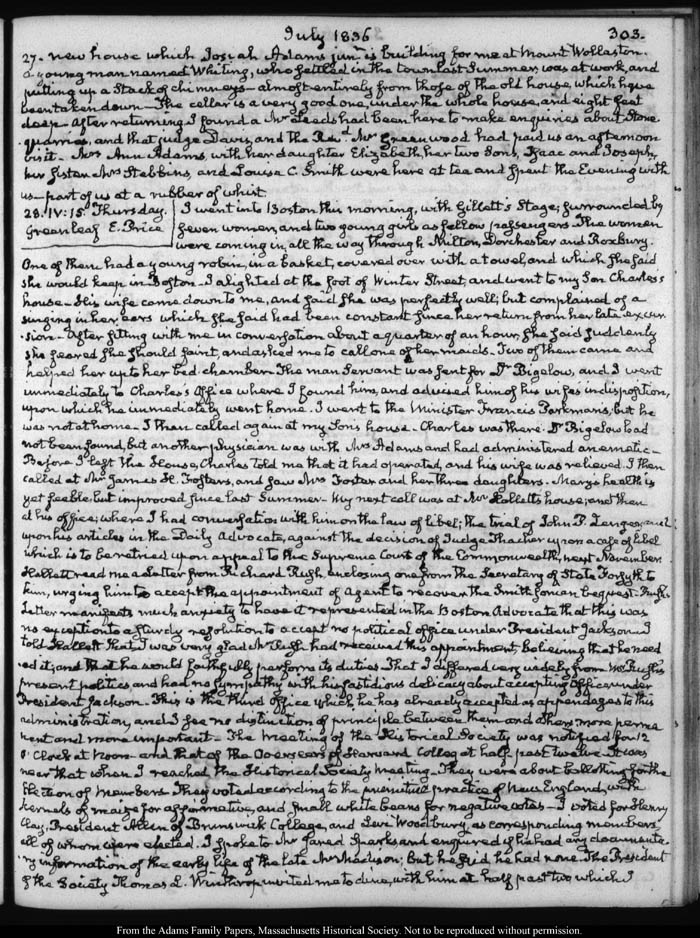 July 1836 303.
27. new house which Josiah Adams junr. is building for me at Mount Wollaston.
a young man named Whiting, who settled in the town last Summer, was at work, and
putting up a Stack of chimneys—almost entirely from those of the old house, which have
been taken down—The cellar is a very good one, under the whole house, and eight feet
deep—After returning I found a Mr Leeds had been here to make enquiries about Stone
quarries, and that judge Davis, and the Revd. Mr Greenwood had paid us an afternoon
visit—Mrs Ann Adams, with her daughter Elizabeth, her two Sons, Isaac and Joseph,
her Sister Mrs Stebbins, and Louisa C. Smith were here at tea and spent the Evening with
us—part of us at a rubber of whist
28. IV:15. Thursday.
Greenleaf E. Price
I went into Boston this morning, with Gillett's Stage; surrounded by
seven women, and two young girls as fellow passengers. The women
were coming in, all the way through Milton, Dorchester and Roxbury.
One of them had a young robin, in a basket, covered over with a towel, and which she said
she would keep in Boston—I alighted at the foot of Winter Street, and went to my Son Charles's
house—His wife came down to me, and said she was perfectly well; but complained of a
singing in her ears which she said had been constant since her return from her late excur
sion—After sitting with me in conversation about a quarter of an hour, she said suddenly
she feared she should faint, and asked me to call one of her maids. Two of them came and
helped her up to her bed chamber. The man Servant was sent for Dr Bigelow, and I went
immediately to Charles's Office where I found him, and advised him of his wife's indisposition,
upon which he immediately went home. I went to the Minister Francis Parkman's, but he
was not at home—I then called again at my Son's house—Charles was there. Dr Bigelow had
not been found, but another physician was with Mrs Adams and had administered an emetic—
Before I left the House, Charles told me that it had operated, and his wife was relieved. I then
called at Mr James H. Foster's, and saw Mrs Foster and her three daughters—Mary's health is
yet feeble but improved since last Summer—My next call was at Mr Hallett's house; and then
at his office; where I had conversation with him on the law of libel; the trial of John P.
upon his articles in the Daily Advocate, against the decision of Judge Thacher upon a case of libel
which is to be retried upon appeal to the Supreme Court of the Commonwealth, next November
Hallett read me a Letter from Richard Rush, enclosing one from the Secretary of State Forsyth to
him, urging him to accept the appointment of Agent to recover the Smithsonian bequest—Rush's
Letter manifests much anxiety to have it represented in the Boston Advocate that this was
no exception to a sturdy resolution to accept no political office under President Jackson—I
told Hallett that I was very glad Mr Rush had received this appointment, believing that he need
ed it; and that he would faithfully perform its duties—That I differed very widely from Mr Rush's
present politics and had no sympathy with his fastidious delicacy about accepting Office under
President Jackson—This is the third Office which he has already accepted as appendages to this
administration, and I see no distinction of principle between them and others more perma
nent and more important—The meeting of the Historical Society was notified for 12
O'Clock at Noon—and that of the Overseers of Harvard College at half past twelve—It was
near that when I reached the Historical Society meeting—They were about balloting for the
Election of Members. They voted according to the primitive practice of New England, with
kernels of maize for affirmative, and small white beans for negative votes—I voted for Henry
Clay, President Allen of Brunswick College, and Levi Woodbury as corresponding members
all of whom were elected. I spoke to Mr Jared Sparks and enquired if he had any documenta
ry information of the early life of the late Mr Madison; but he said he had none. The President
of the Society Thomas L. Winthrop invited me to dine, with him at half past two which I
From the Adams Family Papers, Massachusetts Historical Society. Not to be reproduced without permission.